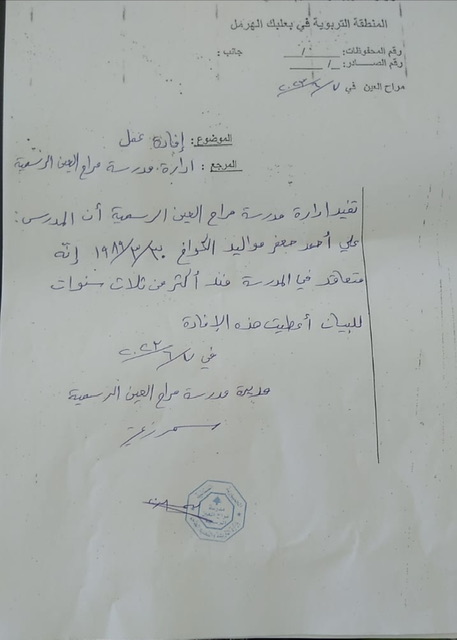 المنطقة التربوية في بعلبك الهرمل
رقم المحفوظات: / جانب :
رقم الصـــادر: /
مراح العين في ٢٠٢٢/٦/٧
الموضوع: إفادة عمل
المرجع : ادارة مدرسة مراح العين الرسمية
تفيد ادارة مدرسة مراح العين الرسمية أن المدرس:
علي أحمد جعفر مواليد الكواخ ١٩٨٩/٣/٢٠ إنّه
متعاقد في المدرسة منذ أكثر من ثلاث سنوات
للبيان أعطيت هذه الإفادة
في ٢٠٢٢/٦/٧
مديرة مدرسة مراح العين الرسمية
سمر زعيتر